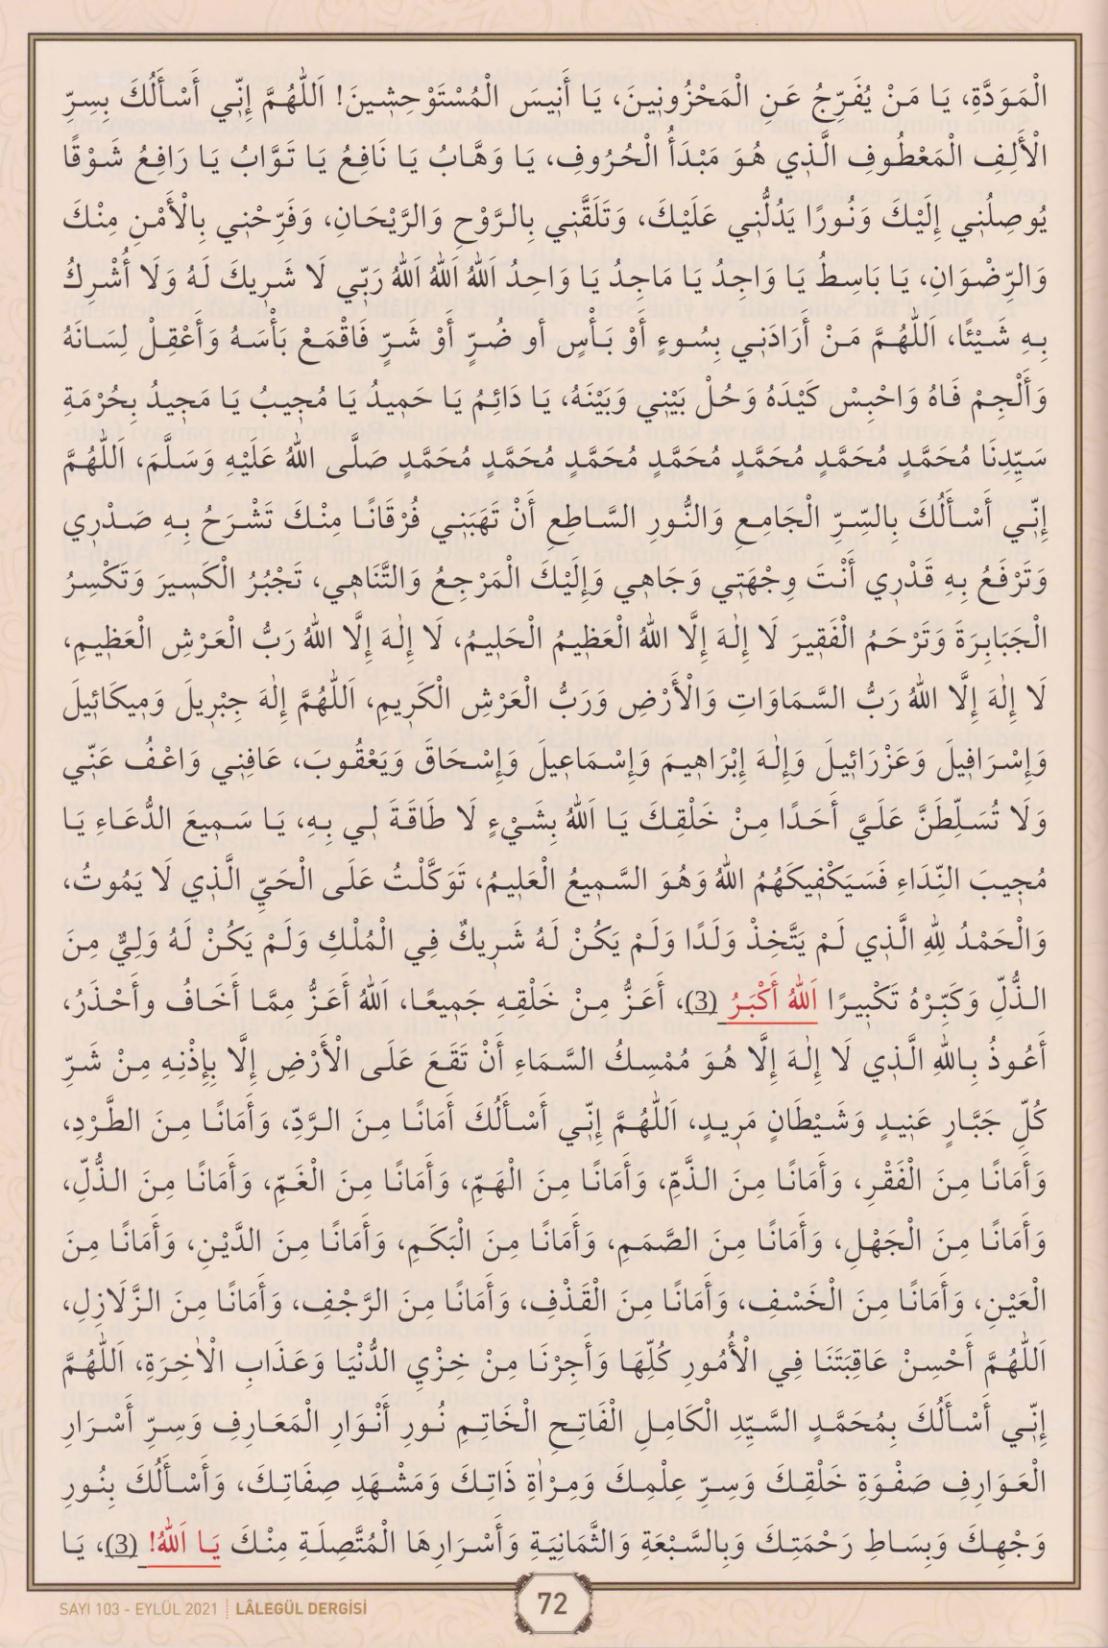 الْمَوَدَّةِ، يَا مَنْ يُفَرِّجُ عَنِ الْمَحْزُونِينَ، يَا أَنِيسَ الْمُسْتَوْحِشِينَ! اَللّٰهُمَّ إِنِّي أَسْأَلُكَ بِسِرِّ
الْأَلِفِ الْمَعْطُوفِ الَّذِي هُوَ مَبْدَأُ الْحُرُوفِ، يَا وَهَّابُ يَا نَافِعُ يَا تَوَّابُ يَا رَافِعُ شَوْقًا
يُوصِلُنِي إِلَيْكَ وَنُورًا يَدُلُّنِي عَلَيْكَ، وَتَلَقَّنِي بِالرَّوْحِ وَالرَّيْحَانِ، وَفَرِّحْنِي بِالْأَمْنِ مِنْكَ
وَالرِّضْوَانِ، يَا بَاسِطُ يَا وَاجِدُ يَا مَاجِدُ يَا وَاحِدُ اَللّٰهُ اَللّٰهُ اَللّٰهُ رَبِّي لَا شَرِيكَ لَهُ وَلَا أُشْرِكُ
بِهِ شَيْئًا، اللّٰهُمَّ مَنْ أَرَادَنِي بِسُوءٍ أَوْ بَأْسٍ أو ضُرٍّ أَوْ شَرٍّ فَاقْمَعْ بَأْسَهُ وَأَعْقِلْ لِسَانَهُ
وَأَلْجِمْ فَاهُ وَاحْبِسْ كَيْدَهُ وَحُلْ بَيْنِي وَبَيْنَهُ، يَا دَائِمُ يَا حَمِيدُ يَا مُجِيبُ يَا مَجِيدُ بِحُرْمَةِ
سَيِّدِنَا مُحَمَّدٍ مُحَمَّدٍ مُحَمَّدٍ مُحَمَّدٍ مُحَمَّدٍ مُحَمَّدٍ مُحَمَّدٍ صَلَّى اللّٰهُ عَلَيْهِ وَسَلَّمَ، اَللّٰهُمَّ
إِنِّي أَسْأَلُكَ بِالسِّرِّ الْجَامِعِ وَالنُّورِ السَّاطِعِ أَنْ تَهَبَنِي فُرْقَانًا مِنْكَ تَشْرَحُ بِهِ صَدْرِي
وَتَرْفَعُ بِهِ قَدْرِي أَنْتَ وِجْهَتِي وَجَاهِي وَإِلَيْكَ الْمَرْجِعُ وَالتَّنَاهِي، تَجْبُرُ الْكَسِيرَ وَتَكْسِرُ
الْجَبَابِرَةَ وَتَرْحَمُ الْفَقِيرَ لَا إِلٰهَ إِلَّا اللّٰهُ الْعَظِيمُ الْحَلِيمُ، لَا إِلٰهَ إِلَّا اللّٰهُ رَبُّ الْعَرْشِ الْعَظِيمِ،
لَا إِلٰهَ إِلَّا اللّٰهُ رَبُّ السَّمَاوَاتِ وَالْأَرْضِ وَرَبُّ الْعَرْشِ الْكَرِيمِ، اَللّٰهُمَّ إِلٰهَ جِبْرِيلَ وَمِيكَائِيلَ
وَإِسْرَافِيلَ وَعَزْرَائِيلَ وَإِلٰهَ إِبْرَاهِيمَ وَإِسْمَاعِيلَ وَإِسْحَاقَ وَيَعْقُوبَ، عَافِنِي وَاعْفُ عَنِّي
وَلَا تُسَلِّطَنَّ عَلَيَّ أَحَدًا مِنْ خَلْقِكَ يَا اَللّٰهُ بِشَيْءٍ لَا طَاقَةَ لِي بِهِ، يَا سَمِيعَ الدُّعَاءِ يَا
مُجِيبَ النِّدَاءِ فَسَيَكْفِيكَهُمُ اللّٰهُ وَهُوَ السَّمِيعُ الْعَلِيمُ، تَوَكَّلْتُ عَلَى الْحَيِّ الَّذِي لَا يَمُوتُ،
وَالْحَمْدُ لِلّٰهِ الَّذِي لَمْ يَتَّخِذْ وَلَدًا وَلَمْ يَكُنْ لَهُ شَرِيكٌ فِي الْمُلْكِ وَلَمْ يَكُنْ لَهُ وَلِيٌّ مِنَ
الذُّلِّ وَكَبِّرْهُ تَكْبِيرًا اَللّٰهُ أَكْبَرُ (3)، أَعَزُّ مِنْ خَلْقِهِ جَمِيعًا، اَللّٰهُ أَعَزُّ مِمَّا أَخَافُ وأَحْذَرُ،
أَعُوذُ بِاللّٰهِ الَّذِي لَا إِلٰهَ إِلَّا هُوَ مُمْسِكُ السَّمَاءِ أَنْ تَقَعَ عَلَى الْأَرْضِ إِلَّا بِإِذْنِهِ مِنْ شَرِّ
كُلِّ جَبَّارٍ عَنِيدٍ وَشَيْطَانٍ مَرِيدٍ، اَللّٰهُمَّ إِنِّي أَسْأَلُكَ أَمَانًا مِنَ الرَّدِّ، وَأَمَانًا مِنَ الطَّرْدِ،
وَأَمَانًا مِنَ الْفَقْرِ، وَأَمَانًا مِنَ الذَّمِّ، وَأَمَانًا مِنَ الْهَمِّ، وَأَمَانًا مِنَ الْغَمِّ، وَأَمَانًا مِنَ الذُّلِّ،
وَأَمَانًا مِنَ الْجَهْلِ، وَأَمَانًا مِنَ الصَّمَمِ، وَأَمَانًا مِنَ الْبَكَمِ، وَأَمَانًا مِنَ الدَّيْنِ، وَأَمَانًا مِنَ
الْعَيْنِ، وَأَمَانًا مِنَ الْخَسْفِ، وَأَمَانًا مِنَ الْقَذْفِ، وَأَمَانًا مِنَ الرَّجْفِ، وَأَمَانًا مِنَ الزَّلَازِلِ،
اَللّٰهُمَّ أَحْسِنْ عَاقِبَتَنَا فِي الْأُمُورِ كُلِّهَا وَأَجِرْنَا مِنْ خِزْيِ الدُّنْيَا وَعَذَابِ الْاٰخِرَةِ، اَللّٰهُمَّ
إِنِّي أَسْأَلُكَ بِمُحَمَّدٍ السَّيِّدِ الْكَامِلِ الْفَاتِحِ الْخَاتِمِ نُورِ أَنْوَارِ الْمَعَارِفِ وَسِرِّ أَسْرَارِ
الْعَوَارِفِ صَفْوَةِ خَلْقِكَ وَسِرِّ عِلْمِكَ وَمِرْاٰةِ ذَاتِكَ وَمَشْهَدِ صِفَاتِكَ، وَأَسْأَلُكَ بِنُورِ
وَجْهِكَ وَبِسَاطِ رَحْمَتِكَ وَبِالسَّبْعَةِ وَالثَّمَانِيَةِ وَأَسْرَارِهَا الْمُتَّصِلَةِ مِنْكَ يَا اَللّٰهُ! (3)، يَا
72
SAYI 103 - EYLÜL 2021 | LÂLEGÜL DERGİSİ